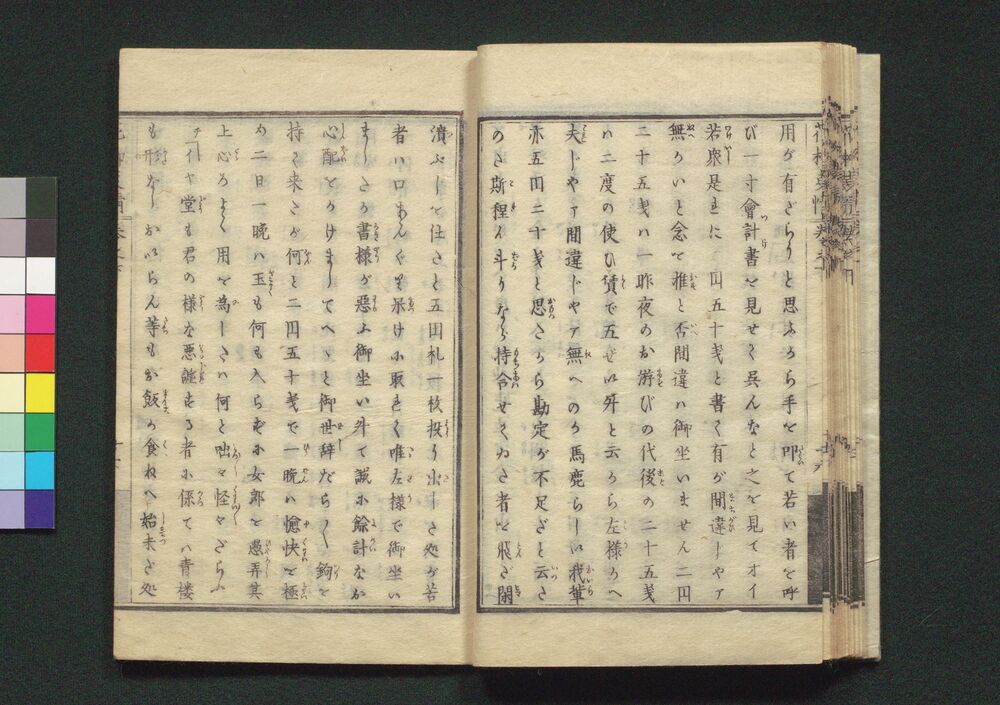 用が有ざらうと思ふから手を叩て若い者を呼
び一寸會計書を見せて呉んなと之を見てオイ
若衆是まに一円五十戋と書て有が間違じやア
無かいと念を推と否間違ハ御坐いません二円
二十五戋ハ一昨夜のお游びの代後の二十五戋
ハ二度の使ひ賃で五ぜい舛と云から左様かへ
夫じやア間違じやア無へのか馬鹿らしい我輩
亦五円二十戋と思たから勘定が不足だと云た
のさ斯程斗りなら持合せてゐた者を飛だ閑
潰ぶしを仕たと五円札一枚投り出した処が若
者ハ口あんぐり呆けに取れて唯左様で御坐い
ましたか書様が悪ふ御坐い舛て誠に餘計なお
心配をかけましてへゝと御世辞だら〱釣を
持て来たが何と二円五十戋で一晩ハ愉快を極
め二日一晩ハ玉も何も入らずに女郎を愚弄其
上心ろよく用を為したハ何と咄々怪々だらふ
チイヤ堂も君の様な悪謔する者に係てハ青楼
も形なしかいらん等もお飯が食ねへ始末だ処